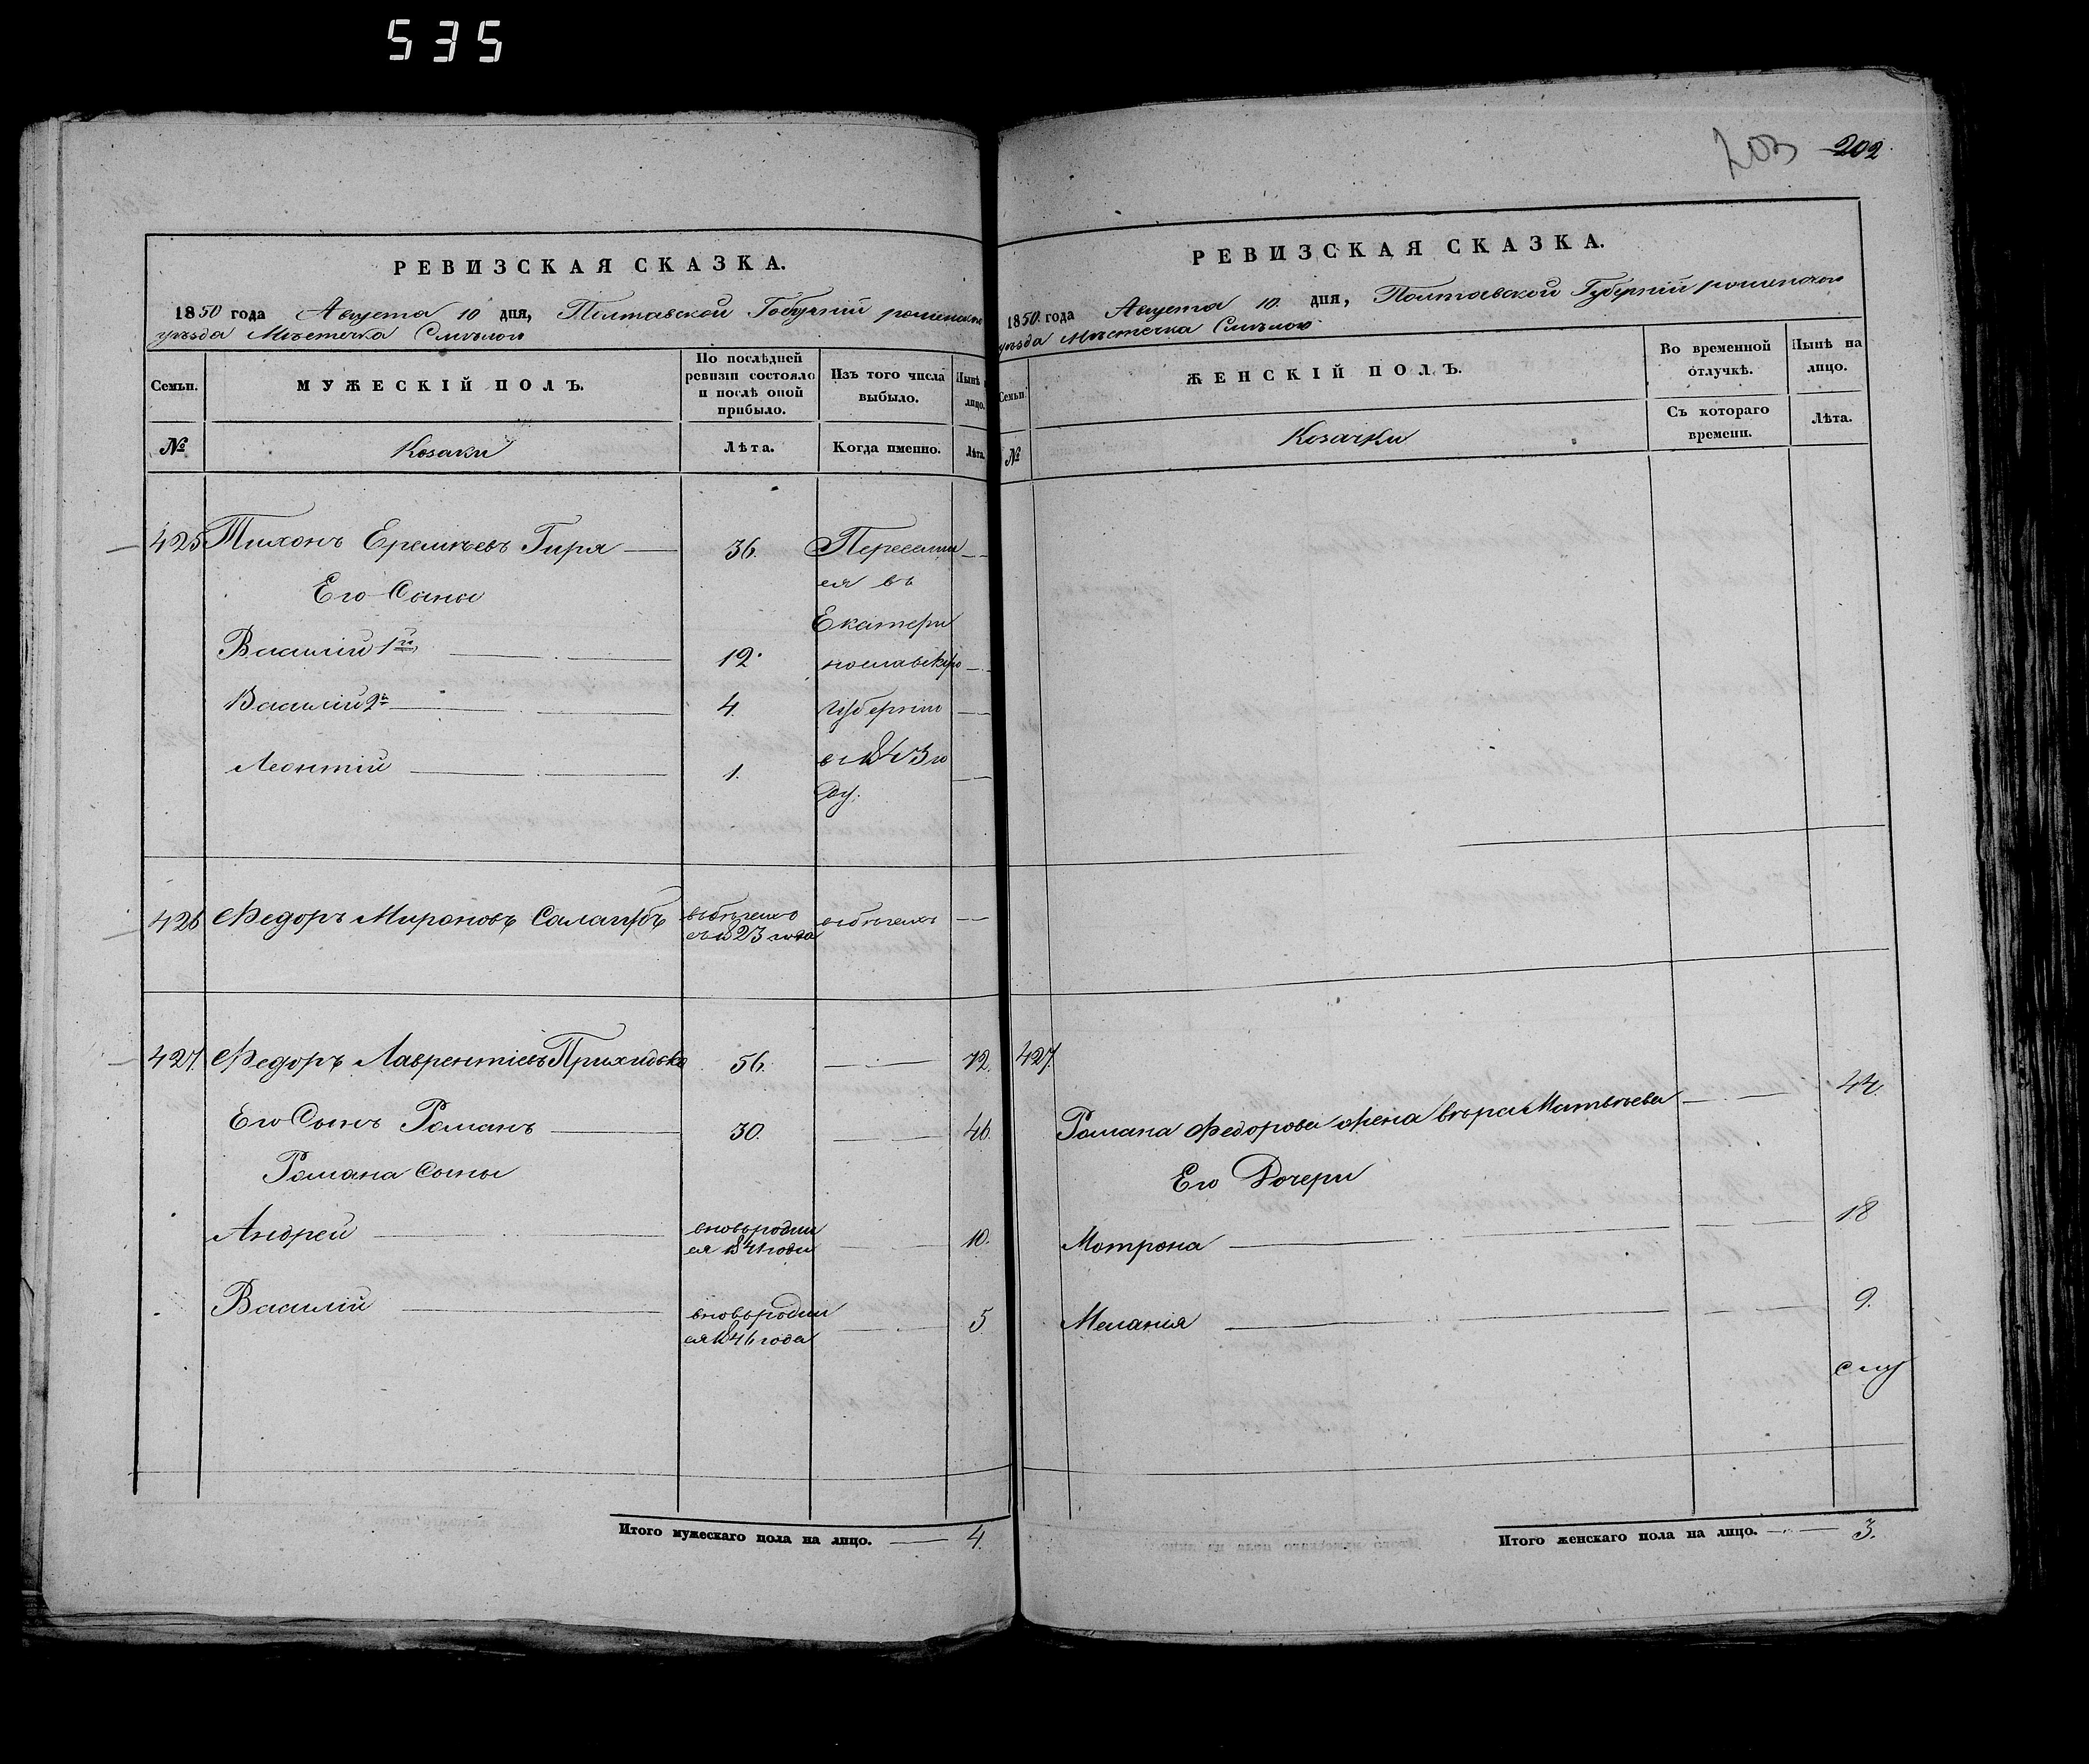 535
203 202
РЕВИЗСКАЯ СКАЗКА.
1850 года Августа 10 дня, Полтавской Губерній роменскаго
уѣзда Мѣстечка Смѣлого
Семьи.
МУЖЕСКІЙ ПОЛЪ.
По послѣдней
ревизіи состояло
и послѣ оной
прибыло.
Изъ того числа
выбыло.
Нынѣ
лицо.
№
Козаки
Лѣта.
Когда именно.
Лѣта.
425 Тихонъ Еремѣевъ Гиря — 36. Переселил
ся въ
Его Сыны
Екатери
Василій 1й — 12. нославскую
Василій 2й — 4. губернію
Леонтій — 1. въ 1843 го
ду.
426 Федоръ Мироновъ въ бѣгахъ въ бѣгахъ —
съ 1823 года
427. Федоръ Лаврентіевъ Прихидько 56. — 72.
Его Сынъ Романъ — 30. — 46.
Романа Сыны
Андрей — вновьродил — 10.
ся 1841 года
Василій — вновьродил — 5
ся 1846 года
Итого мужескаго пола на лицо. — 4.
РЕВИЗСКАЯ СКАЗКА.
1850 года Августа 10. дня, Полтавской Губерніи роменского
уѣзда Мѣстечка Смѣлого
Семьи
ЖЕНСКІЙ ПОЛЪ.
Во временной
отлучкѣ.
Нынѣ на
лицо.
№
Козачки
Съ котораго
времени.
Лѣта.
427.
Романа Федорова жена вѣра Матвѣева — 44.
Его Дочери
Мотрона — 18
Меланія — 9.
Итого женскаго пола на лицо. — 3.